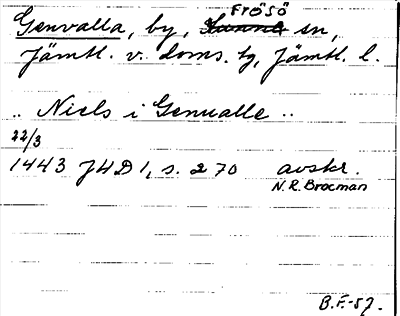 Frösö
Genvalla, by, Sunne sn,
Jämtl. v. doms. tg, Jämtl. l.
.. Niels i Genualle ..
22/3
1443 JHD 1, s. 270 avskr.
N.R. Brocman
B.F.-57.